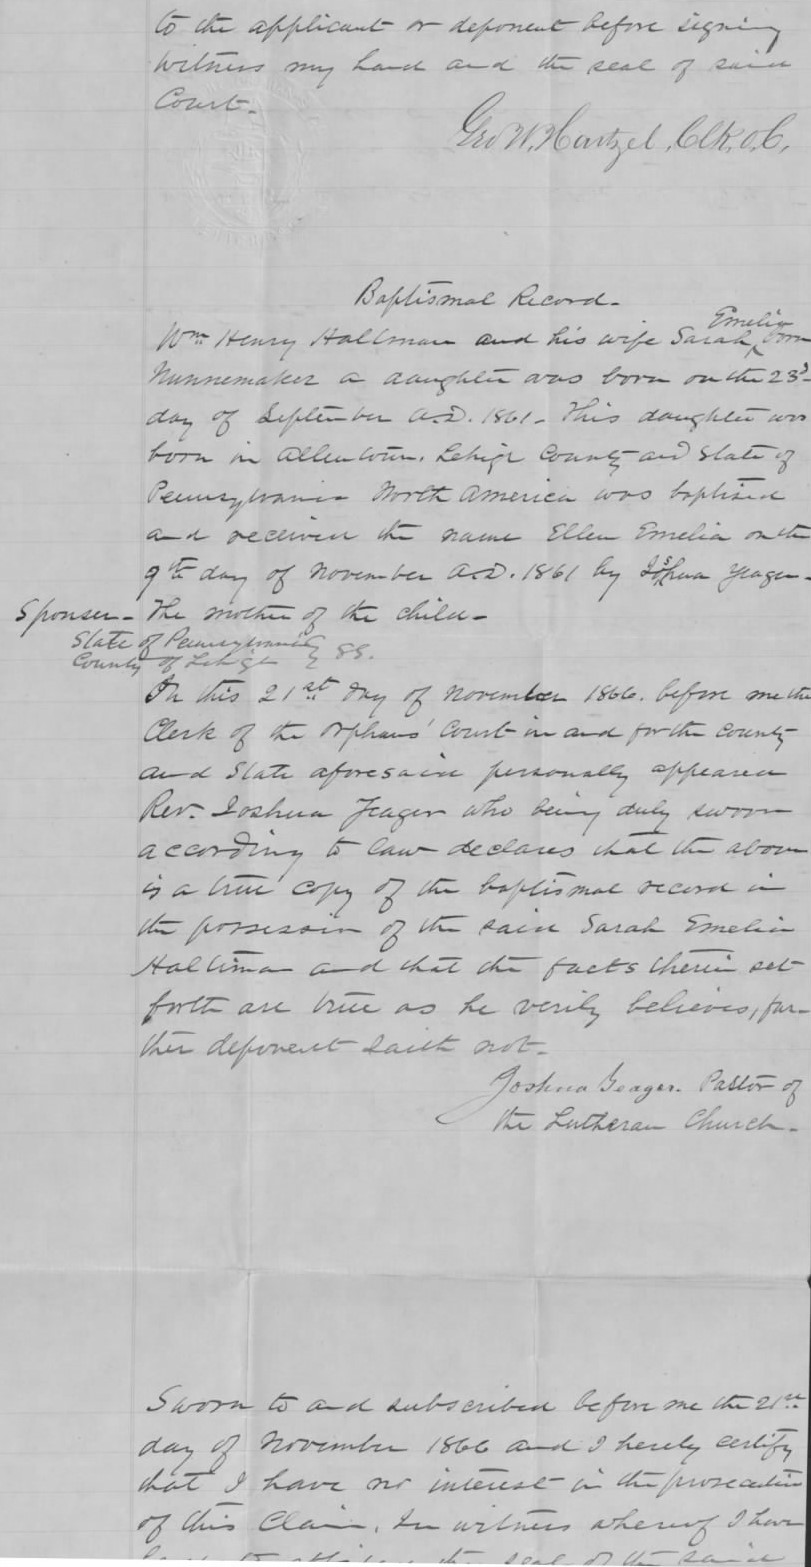 to the applicant or deponent before signing
Witness my hand and the seal of said
Court.
Geo W. Hartzel, Clk. O. C.
Baptismal Record.
Emelia
Wm Henry Haltiman and his wife Sarah ^ born
Nunnemaker a daughter was born on the 23d
day of September A.D. 1861. This daughter was
born in Allentown, Lehigh County and State of
Pennsylvania North America was baptised
and received the name Ellen Emelia on the
9th day of November A.D. 1861 by Joshua Yeager.
Sponser - The mother of the child.
State of Pennsylvania }
County of Lehigh } SS.
On this 21st day of November 1866. before me the
Clerk of the Orphans' Court in and for the county
and State aforesaid personally appeared
Rev. Joshua Yeager who being duly sworn
according to law declares that the above
is a true copy of the baptismal record in
the possession of the said Sarah Emelia
Haltiman and that the facts therein set
forth are true as he verily believes, fur-
ther deponent saith not.
Joshua Yeager. Pastor of
the Lutheran Church.
Sworn to and subscribed before me the 21st
day of November 1866 and I hereby certify
that I have no interest in the prosecution
of this Claim. In witness whereof I have
the seal of the said